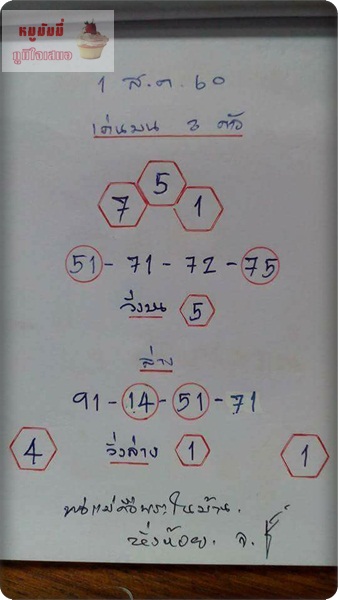 หมูมัมมี่
ภูมิใจเสนอ
1 ส.ค. 60
เด่นบน 3 ตัว
5
7 1
51 - 71 - 72 - 75
วิ่งบน 5
ล่าง
91 - 14 - 51 - 71
4 วิ่งล่าง 1 1
พ่อแม่คือพระในบ้าน.